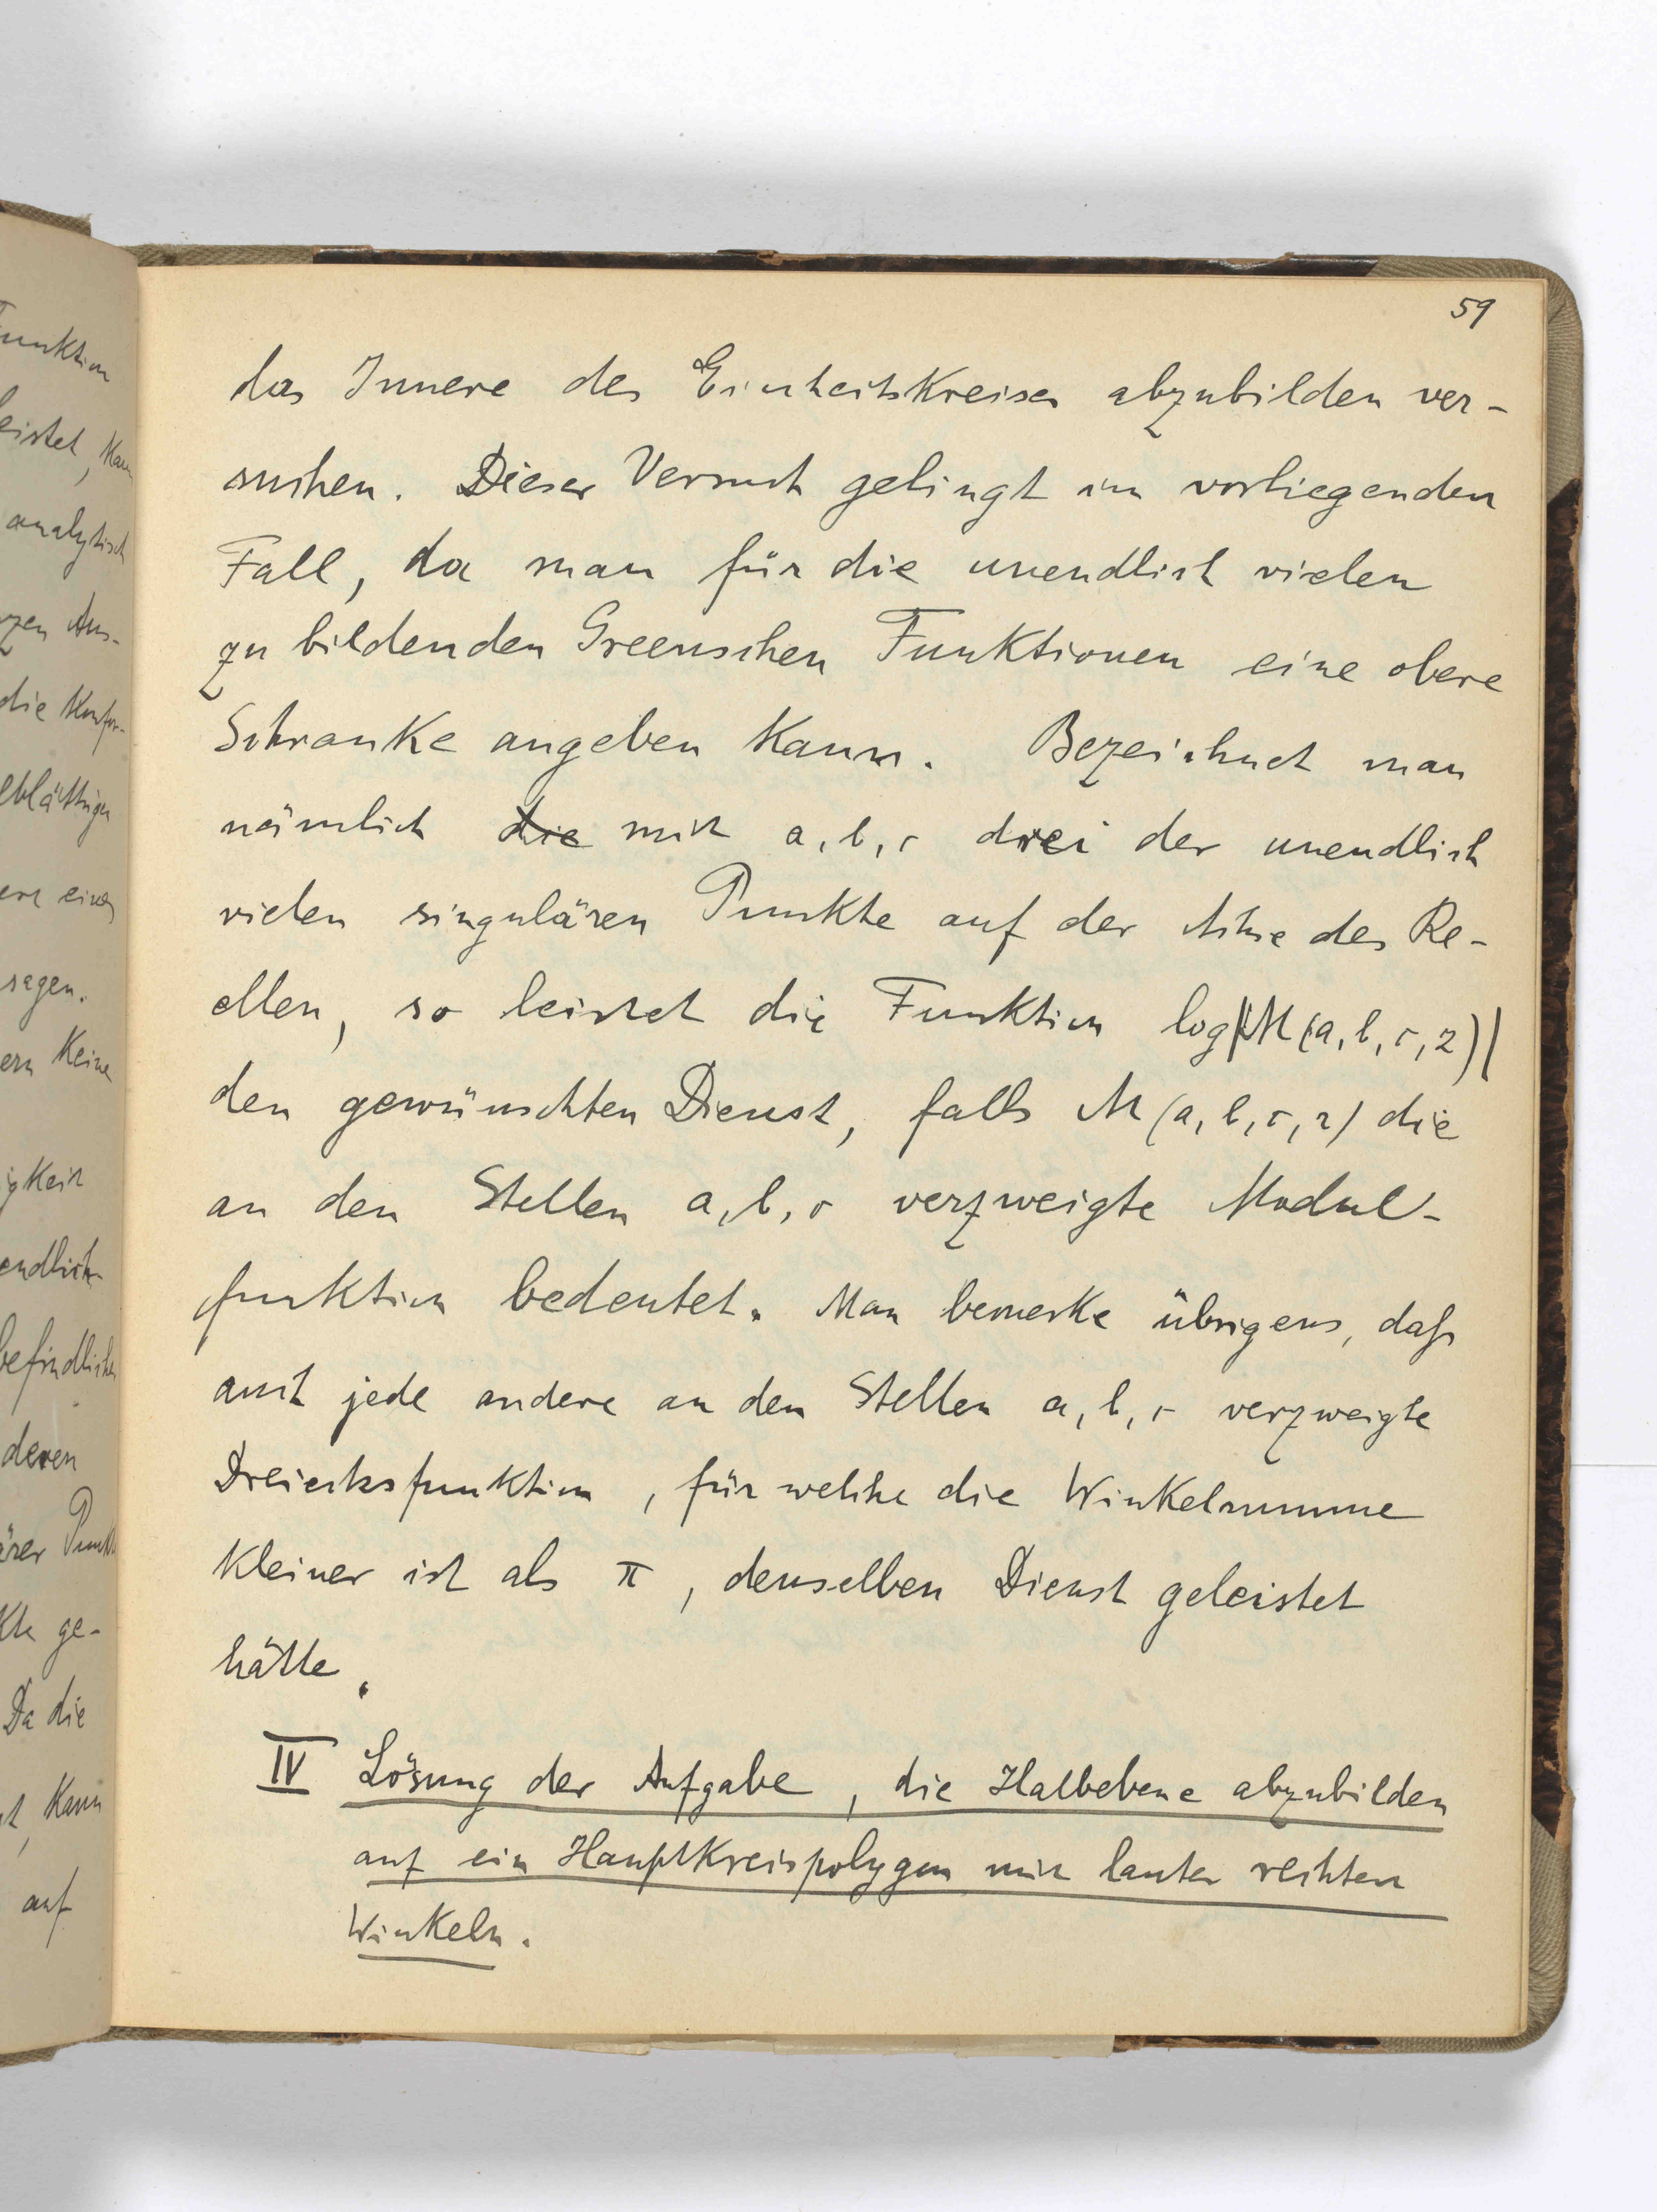 59
das Innere des Einheitskreises abzubilden ver-
suchen. Dieser Versuch gelingt im vorliegenden
Fall, da man für die unendlich vielen
zu bildenden Greenschen Funktionen eine obere
Schranke angeben kann. Bezeichnet man
nämlich die mit a, b, c drei der unendlich
vielen singulären Punkte auf der Achse des Re-
ellen, so leistet die Funktion log|M(a, b, c, z)|
den gewünschten Dienst, falls M(a, b, c, z) die
an den Stellen a, b, c verzweigte Modul-
funktion bedeutet. Man bemerke übrigens, daß
auch jede andere an den Stellen a, b, c verzweigte
Dreiecksfunktion, für welche die Winkelsumme
kleiner ist als π, denselben Dienst geleistet
hätte.
IV Lösung der Aufgabe, die Halbebene abzubilden
auf ein Hauptkreispolygon mit lauter rechten
Winkeln.